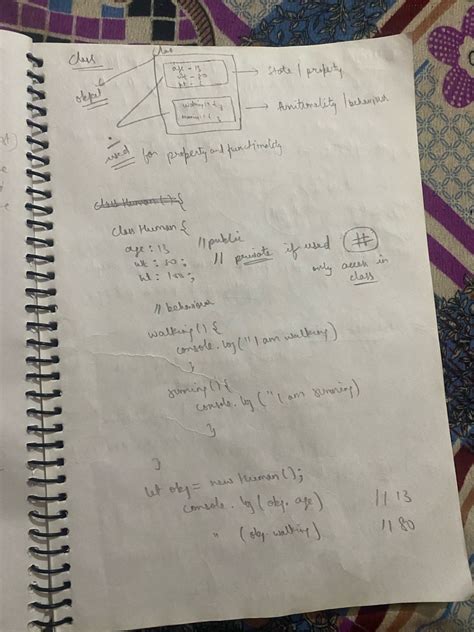 Class
Class
age = 13
wt = 80
ht =
→ State / property
object
walking() { }
running() { }
→ / behaviour
used for property and functionality
class Human () {
class Human {
age : 13 // public
wt : 80; // private if used #
ht : 180; only access in class
// behaviour
walking() {
console.log("I am walking)
}
running() {
console.log("I am running)
}
}
let obj = new Human();
console.log(obj.age) // 13
" (obj.walking) // 80